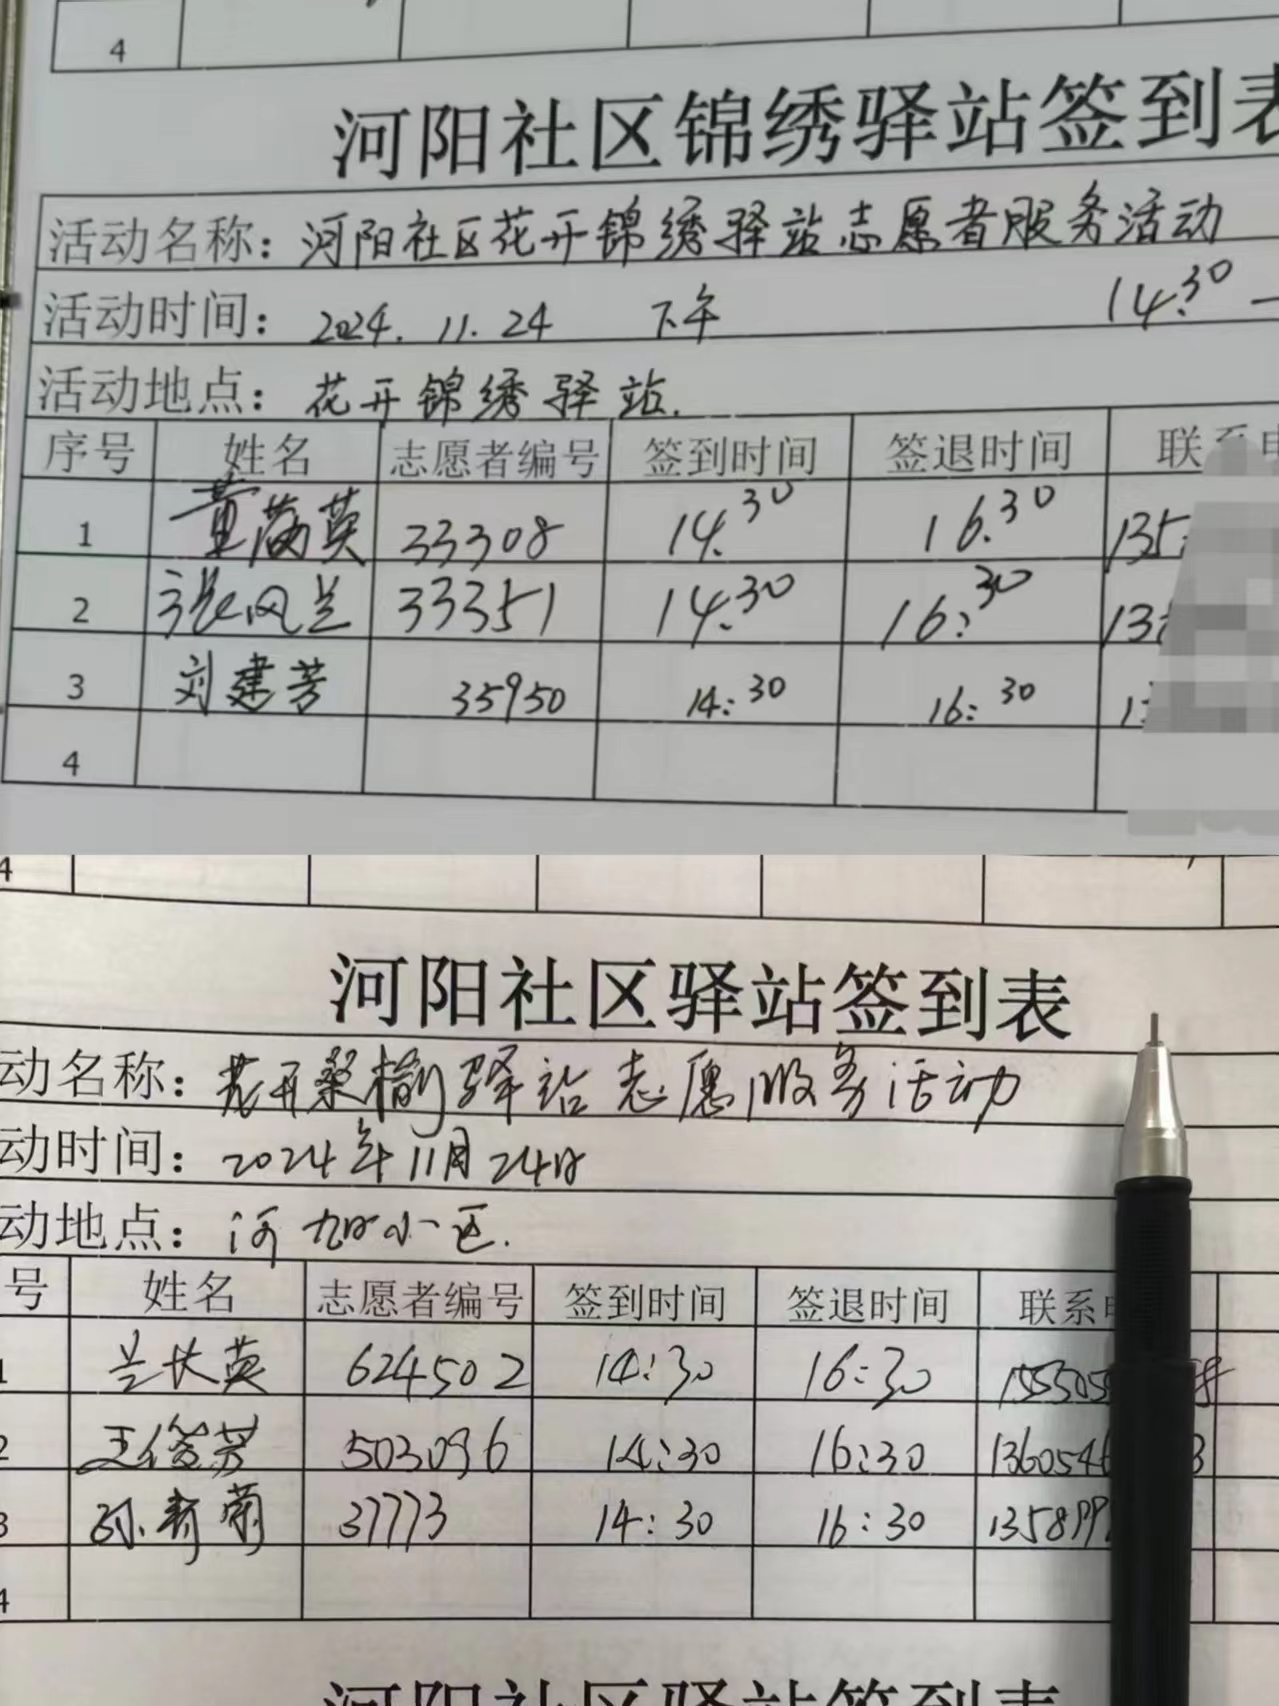 4
河阳社区锦绣驿站签到表
活动名称：河阳社区花开锦绣驿站志愿者服务活动
活动时间：2024.11.24 下午 14:30 —
活动地点：花开锦绣驿站.
序号 姓名 志愿者编号 签到时间 签退时间 联系电
1 黄荫英 33308 14:30 16:30 135
2 张风兰 33351 14:30 16:30 13
3 刘建芳 35950 14:30 16:30 1
4
4
河阳社区驿站签到表
动名称：花开桑榆驿站志愿服务活动
动时间：2024年11月24日
动地点：河阳小区.
号 姓名 志愿者编号 签到时间 签退时间 联系
1 兰长英 624502 14:30 16:30 155505
2 王俊芳 503096 14:30 16:30 136054 3
3 孙新菊 37773 14:30 16:30 13589
4
河阳社区驿站签到表